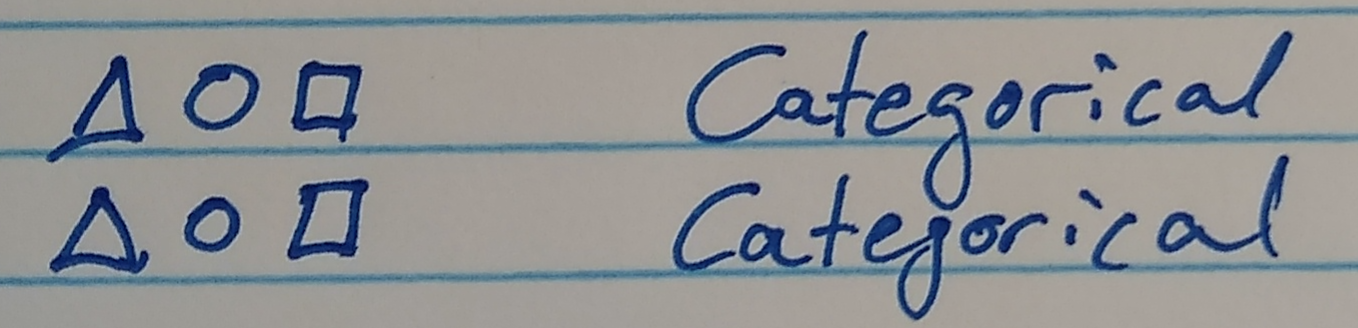 △ ○ □ Categorical
△ ○ □ Categorical